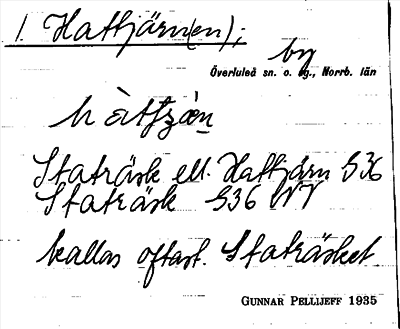 1 Hattjärn(en);
by
Överluleå sn. o. sg., Norrb. län
hàtʃæ̀n
Staträsk ell. Hattjärn S36
Staträsk S36 NV
kallas oftast. Staträsket.
GUNNAR PELLIJEFF 1935